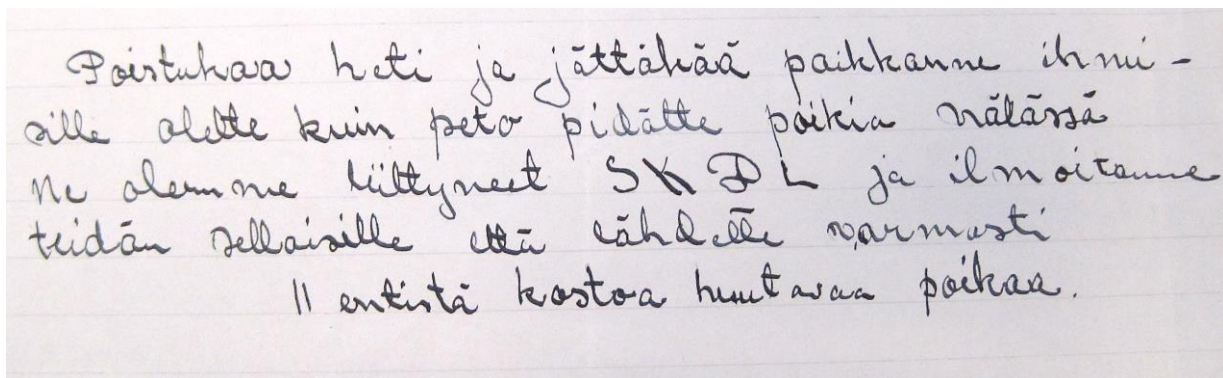 Poistukaa heti ja jättäkää paikkanne ihmi-
sille olette kuin peto pidätte poikia nälässä
Me olemme liittyneet SKDL ja ilmoitamme
teidän sellaisille että lähdette varmasti
11 entistä kostoa huutavaa poikaa.